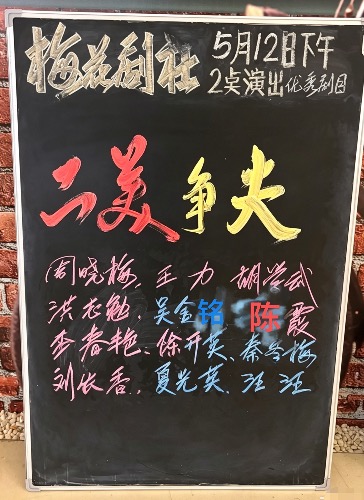 梅花剧社
5月12日下午
2点演出优秀剧目
二美争夫
周晓梅、王力 胡学武
洪志勉、吴金铭 陈霞
李春艳、徐开英、秦冬梅
刘长香、夏光英、汪汪